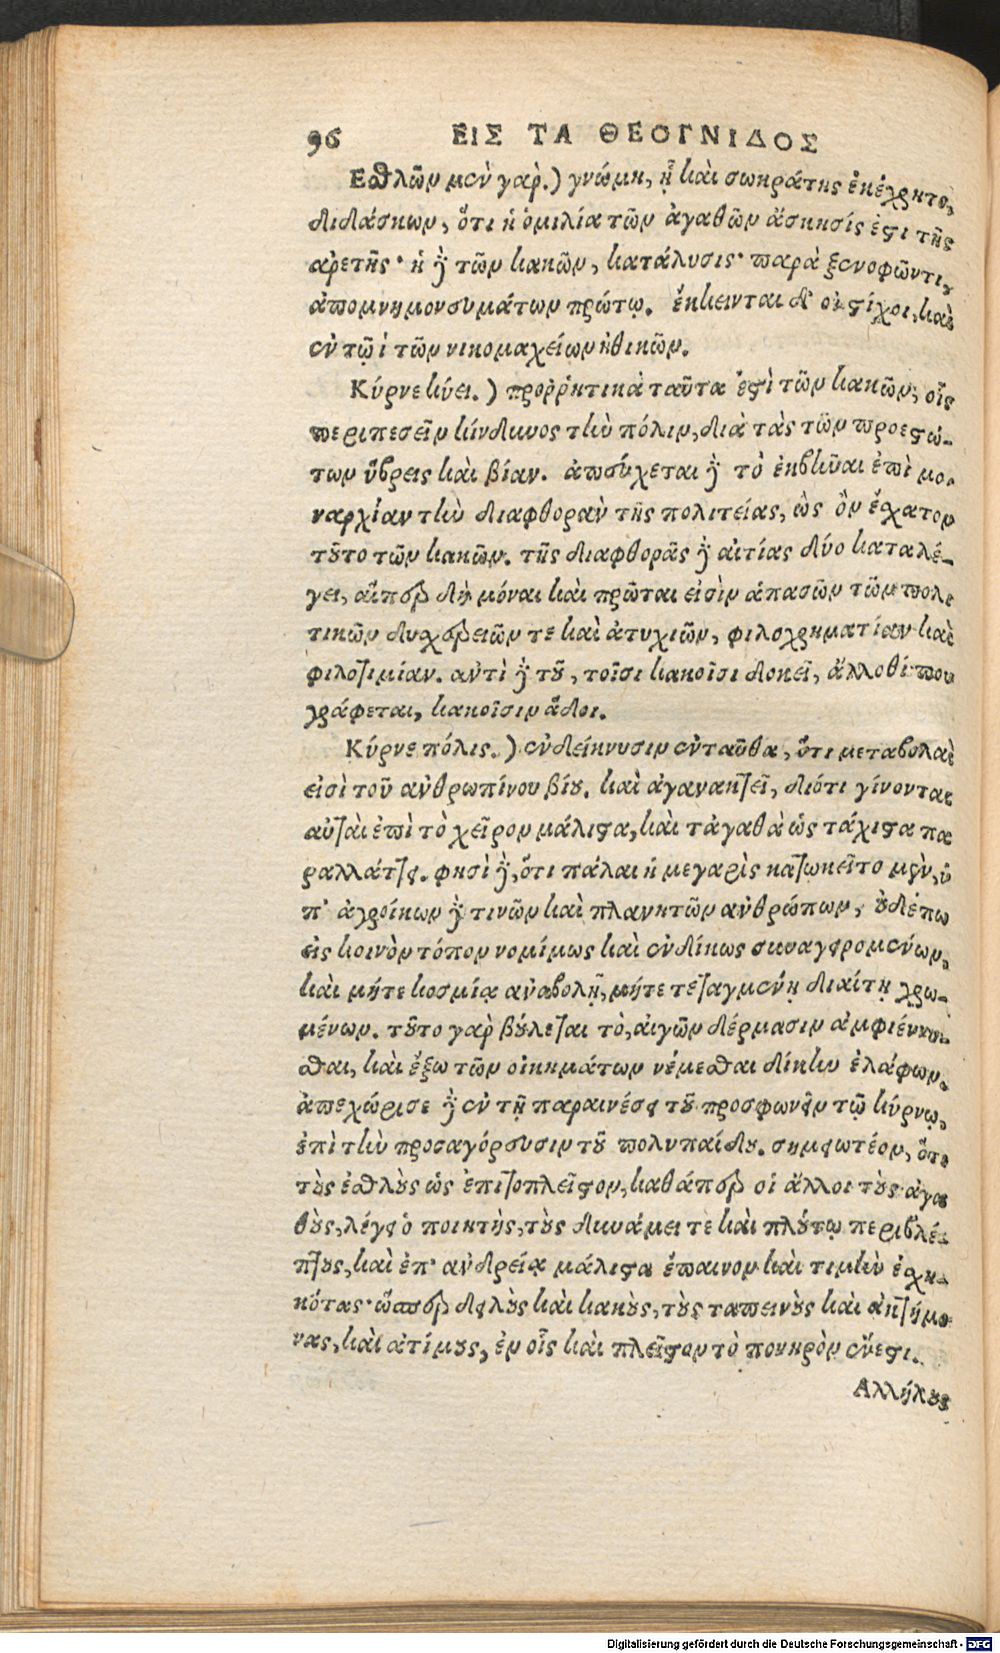 96 ΕΙΣ ΤΑ ΘΕΟΓΝΙΔΟΣ
Εσθλῶν μὲν γαρ̀.) γνώμη, ᾗ καὶ σωκράτης ἐκέχρητο,
διδάσκων, ὅτι ἡ ὁμιλία τῶν ἀγαθῶν ἄσκησίς ἐστι τῆς
αρετῆς· ἡ δὲ τῶν κακῶν, κατάλυσις· παρὰ ξενοφῶντι,
ἀπομνημονευμάτων πρώτῳ. ἔκκεινται δ' οἱ στίχοι, καὶ
ἐν τῷ ι τῶν νικομαχείων ἠθικῶν.
Κύρνε κύει.) προῤῥητικὰ ταῦτα ἐστὶ τῶν κακῶν, οἷς
περιπεσεῖν κίνδυνος τὴν πόλιν, διὰ τὰς τῶν προεστώ-
των ὕβρεις καὶ βίαν. ἀπεύχεται δὲ τὸ ἐκβῆναι ἐπὶ μο-
ναρχίαν τὴν διαφθορὰν τῆς πολιτείας, ὡς ὂν ἔσχατον
τοῦτο τῶν κακῶν. τῆς διαφθορᾶς δὲ αἰτίας δύο καταλέ-
γει, αἵπερ δὴ μόναι καὶ πρῶται εἰσὶν ἁπασῶν τῶν πολι
τικῶν δυσχερειῶν τε καὶ ἀτυχιῶν, φιλοχρηματίαν καὶ
φιλοτιμίαν. αντὶ δὲ τοῦ, τοῖσι κακοῖσι δοκεῖ, ἄλλοθί που
γράφεται, κακοῖσιν ἅδοι.
Κύρνε πόλις.) ἐνδείκνυσιν ἐνταῦθα, ὅτι μεταβολαὶ
εἰσὶ τοῦ ανθρωπίνου βίου. καὶ ἀγανακτεῖ, διότι γίνονται
αὐταὶ ἐπὶ τὸ χεῖρον μάλιστα, καὶ τἀγαθὰ ὡς τάχιστα πα
ραλλάττει. φησὶ δὲ, ὅτι πάλαι ἡ μεγαρὶς κατῳκεῖτο μὲν, ὑ
π' ἀγροίκων δέ τινῶν καὶ πλανητῶν ανθρώπων, οὐδέπω
εἰς κοινὸν τόπον νομίμως καὶ ἐνδίκως συναγειρομένων,
καὶ μήτε κοσμίᾳ αναβολῇ, μήτε τεταγμένῃ διαίτῃ χρω-
μένων. τοῦτο γαρ̀ βούλεται τὸ, αἰγῶν δέρμασιν ἀμφιέννυ-
σθαι, καὶ ἔξω τῶν οἰκημάτων νέμεσθαι δίκην ἐλάφων.
ἀπεχώρισε δὲ ἐν τῇ παραινέσει τοῦ προσφωνεῖν τῷ κύρνῳ,
ἐπὶ τὴν προσαγόρευσιν τοῦ πολυπαίδου. σημειωτέον, ὅτι
τοὺς ἐσθλοὺς ὡς ἐπιτοπλεῖστον, καθάπερ οἱ ἄλλοι τοὺς ἀγα
θοὺς, λέγει ὁ ποιητὴς, τοὺς δυνάμει τὲ καὶ πλούτῳ περιβλέ-
πτους, καὶ ἐπ' ανδρείᾳ μάλιστα ἔπαινον καὶ τιμὴν ἐσχη-
κότας· ὥσπερ δειλοὺς καὶ κακοὺς, τοὺς ταπεινοὺς καὶ ἀκτήμο
νας, καὶ ἀτίμους, ἐν οἷς καὶ πλεῖστον τὸ πονηρὸν ἔνεστι.
Αλλήλους
Digitalisierung gefördert durch die Deutsche Forschungsgemeinschaft - DFG